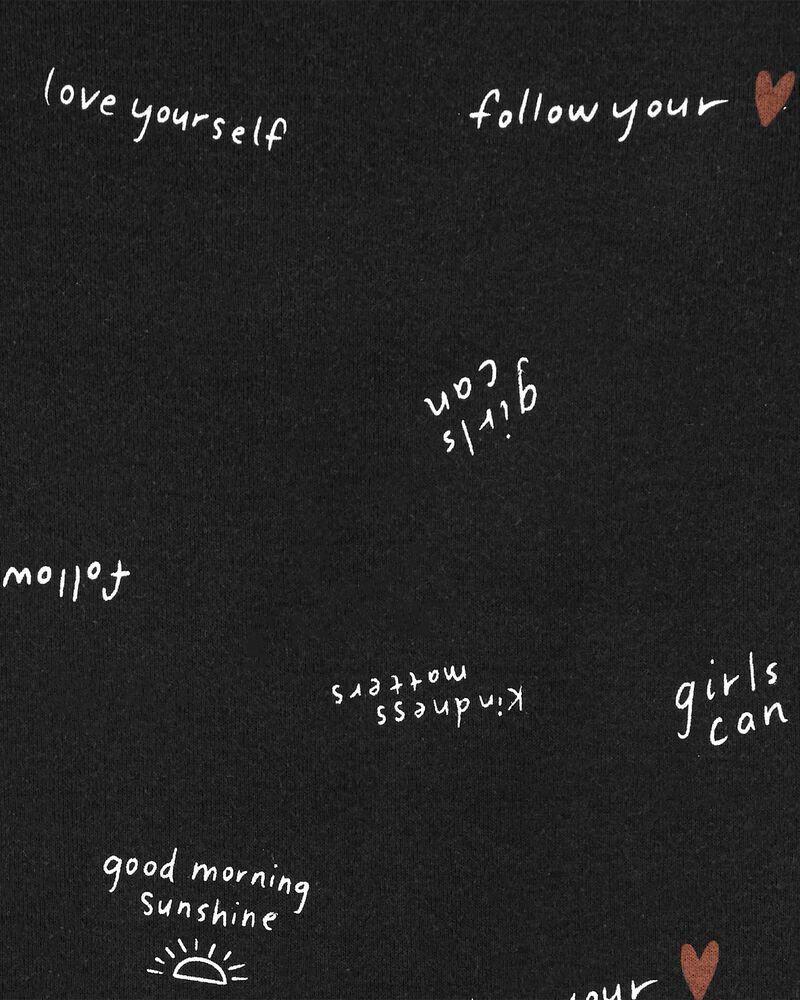 love yourself
follow your
girls
can
follow
kindness
matters
girls
can
good morning
sunshine
your